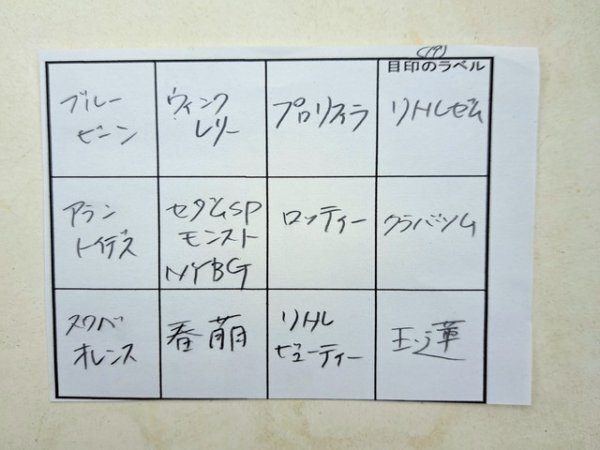 (19)
目印のラベル
ブルー
ビーン
ウィンク
レリー
プロリフィラ
リトルゼム
アラン
トイデス
セダムSP
モンスト
NYBG
ロッティー
クラバツム
スワベ
オレンス
春萌
リトル
ビューティー
玉蓮